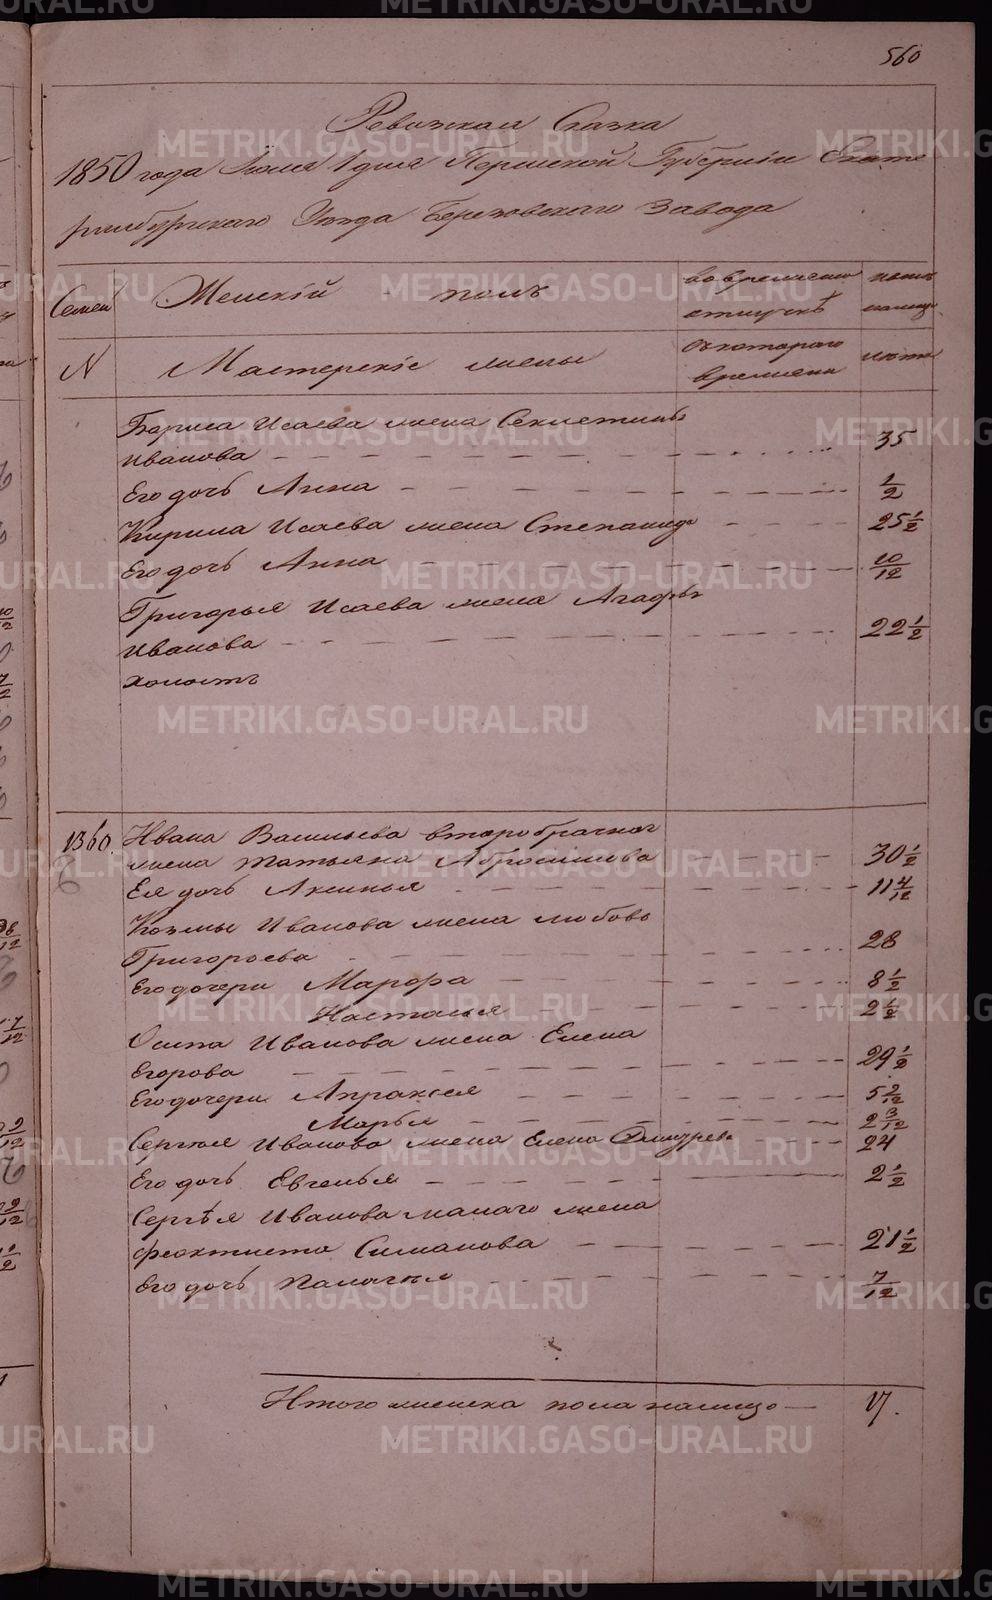 560
Ревизская Сказка
1850 года Июля 1 дня Пермской Губернии Екате
ринбургского Уезда Березовского Завода
Семей Женский полъ во временной отлучкѣ нынѣ налицо
N Мастерскіе жены съ котораго времени лѣта
Бориса Исаева жена Секлетинья
Иванова 35
Его дочь Анна 1/2
Кирила Исаева жена Степанида 25 1/2
Его дочь Анна 10/12
Григорья Исаева жена Агафья
Иванова 22 1/2
холостъ
1360. Ивана Васильева второбрачног
жена татьяна Абросимова 30 1/2
Ея дочь Аксинья 11 4/12
Козмы Иванова жена любовь
Григорьева 28
Его дочери Марфа 8 1/2
Насталья 2 1/2
Осипа Иванова жена Елена
Егорова 29 1/2
Его дочери Апраксея 5 2/12
Марья 2 3/12
Сергѣя Иванова жена Елена Дмитрева 24
Его дочь Евгенья 2 1/2
Сергѣя Иванова малаго жена
феоктиста Симанова 21 1/2
Его дочь Палагѣя 7/12
Итого женска пола налицо 17.
METRIKI.GASO-URAL.RU